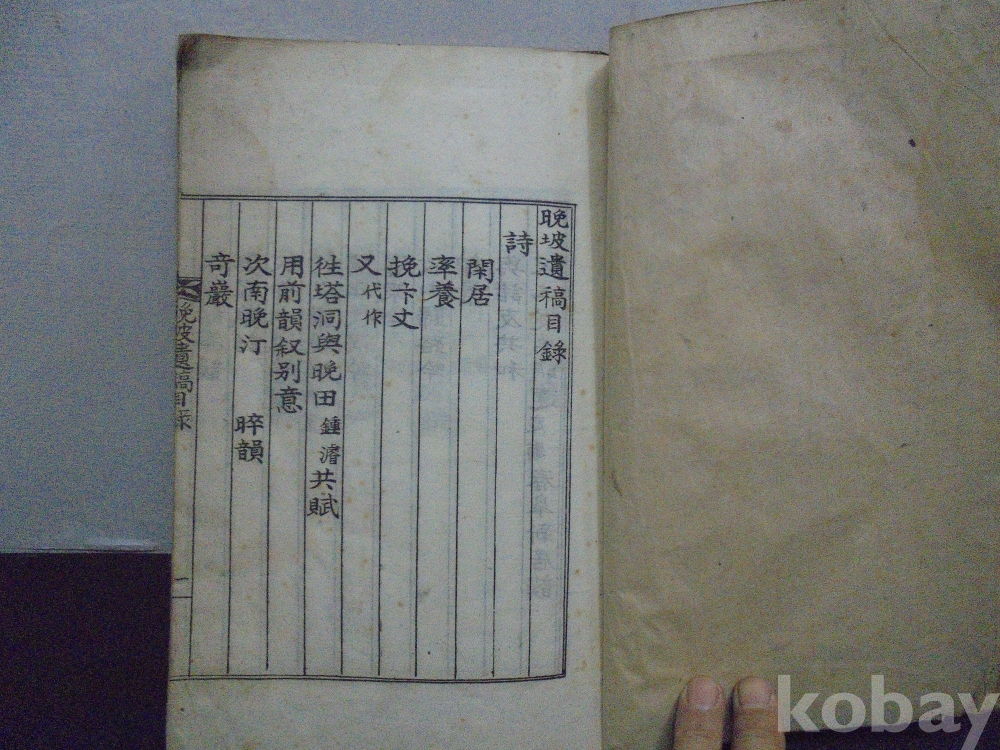 晚坡遺稿目錄
詩
閑居
率養
挽卞丈
又代作
徃塔洞與晚田鍾濬共賦
用前韻叙别意
次南晚汀 晬韻
奇巖
晚坡遺稿目錄
一
kobay